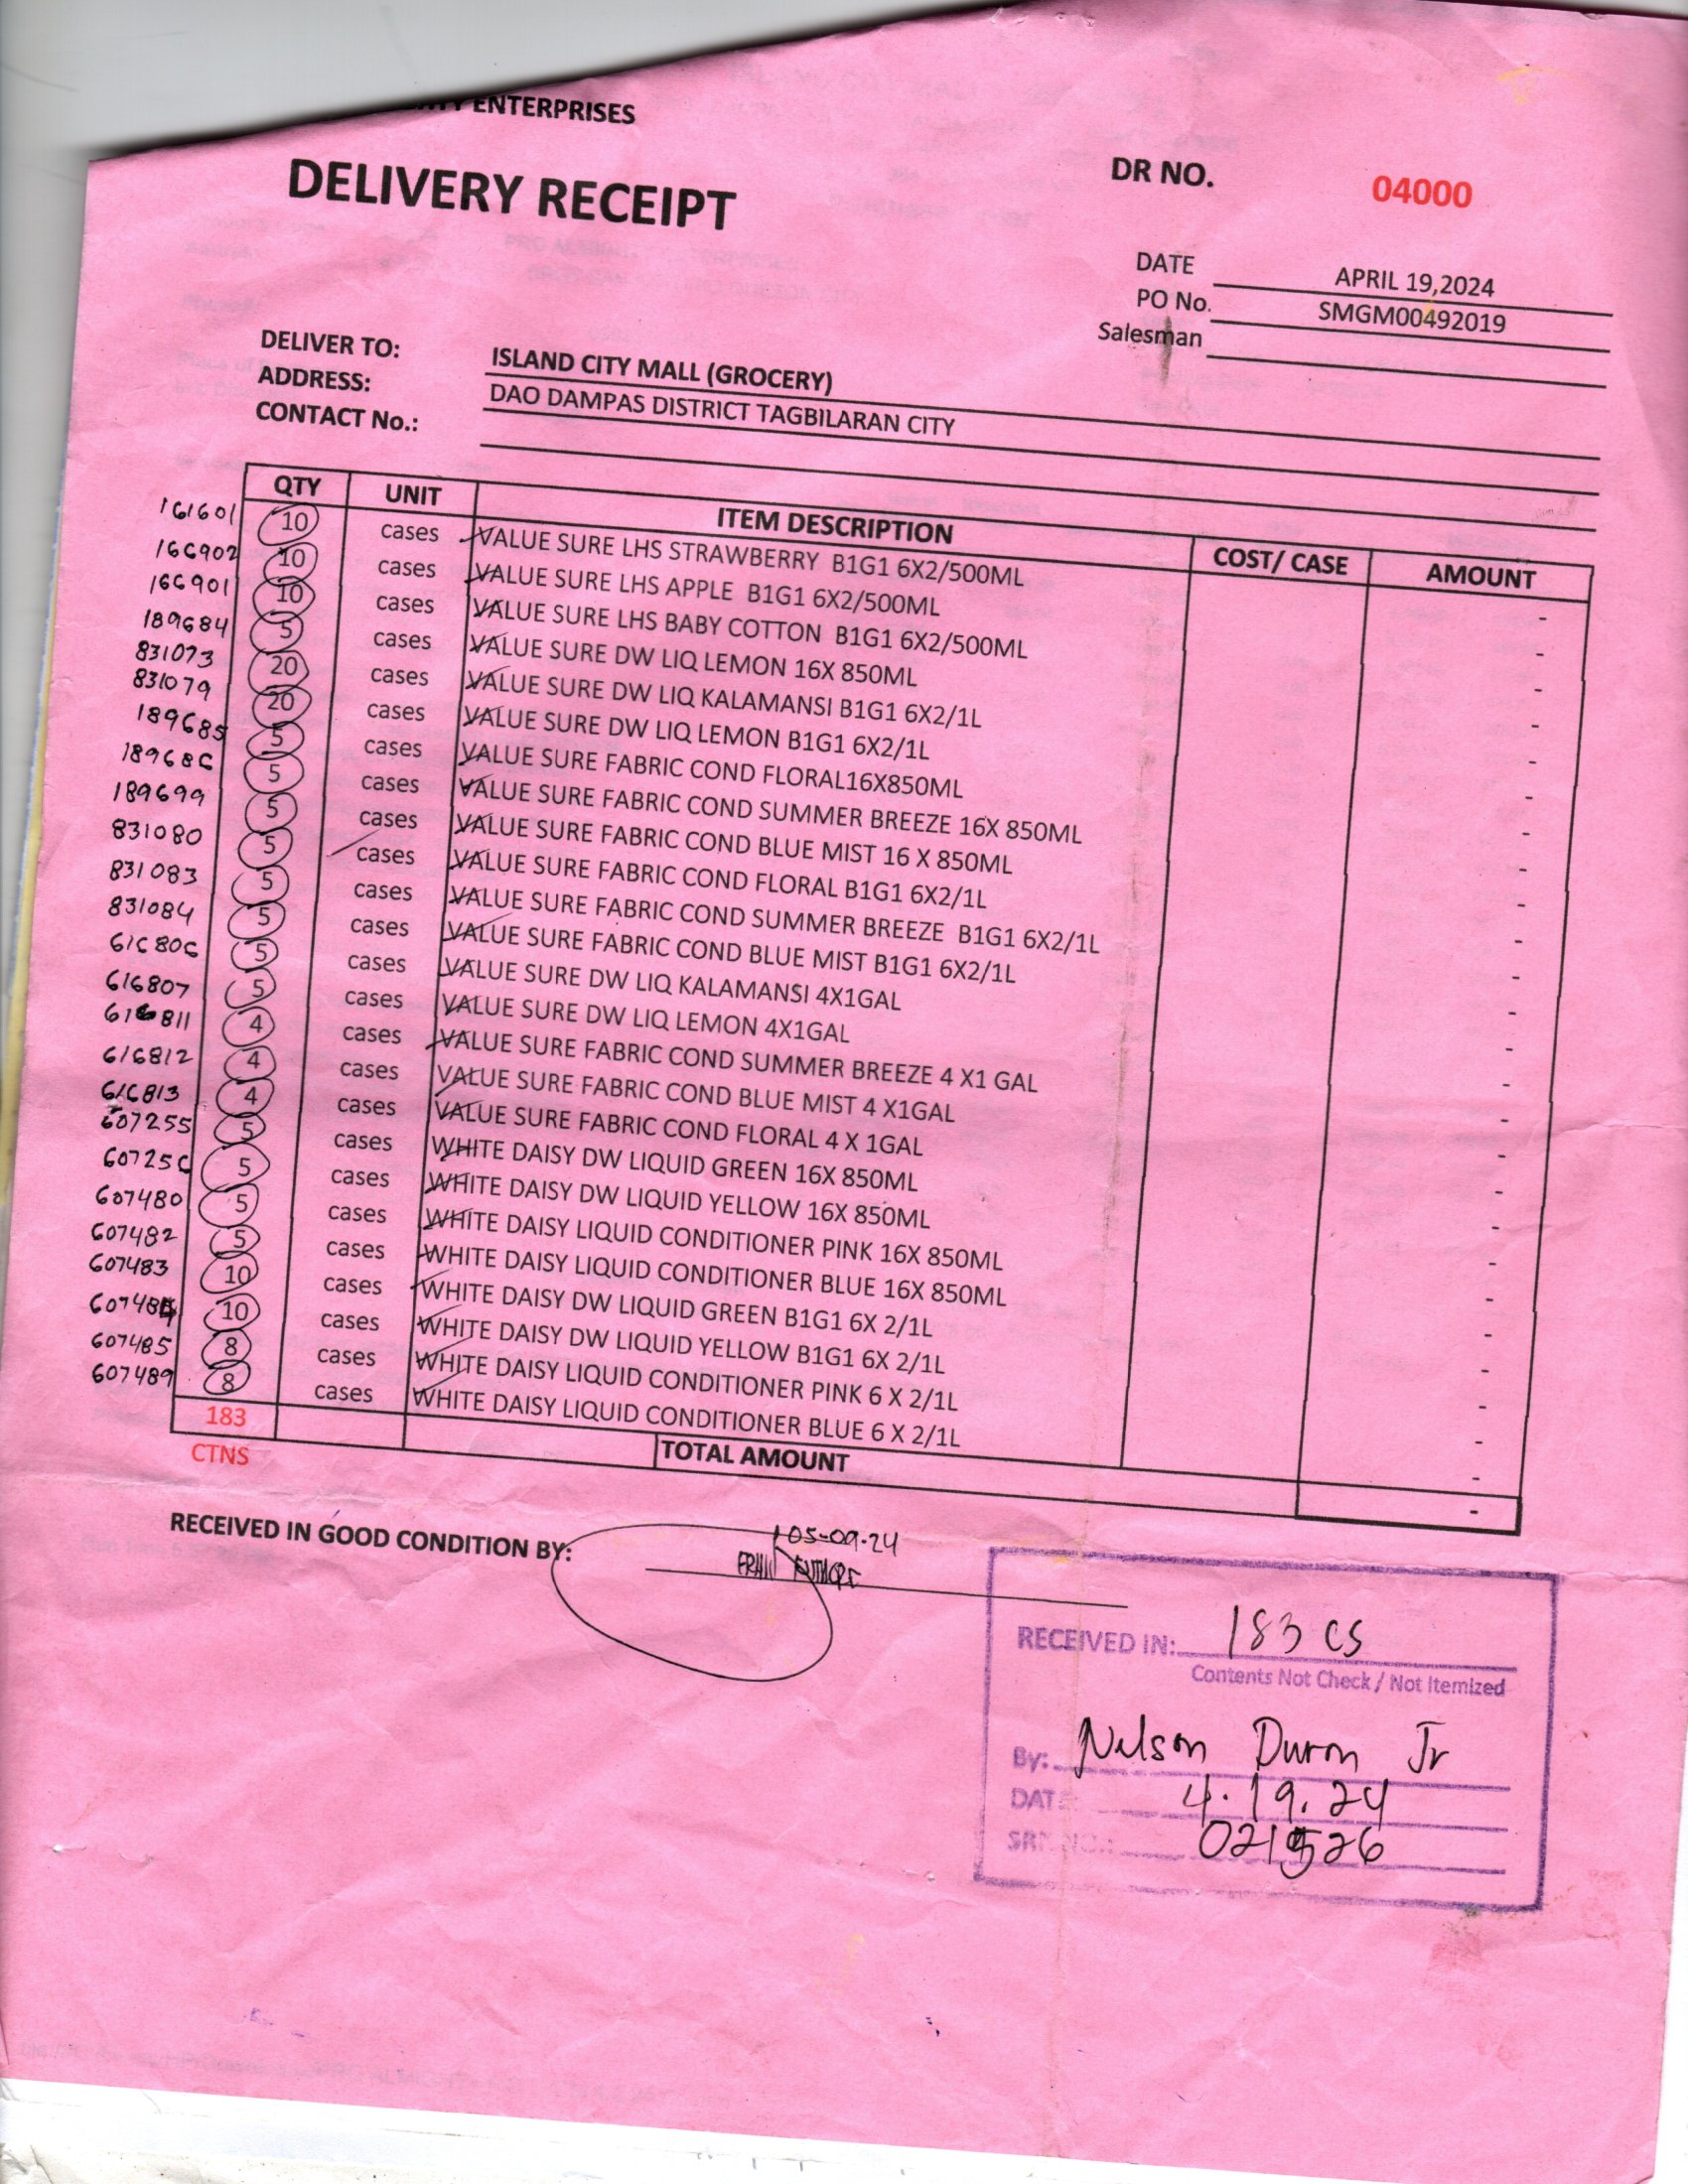 ENTERPRISES
DELIVERY RECEIPT
DR NO. 04000
DATE APRIL 19,2024
PO No. SMGM00492019
Salesman
DELIVER TO: ISLAND CITY MALL (GROCERY)
ADDRESS: DAO DAMPAS DISTRICT TAGBILARAN CITY
CONTACT No.:
QTY UNIT ITEM DESCRIPTION COST/ CASE AMOUNT
161601 10 cases VALUE SURE LHS STRAWBERRY B1G1 6X2/500ML -
166902 10 cases VALUE SURE LHS APPLE B1G1 6X2/500ML -
166901 10 cases VALUE SURE LHS BABY COTTON B1G1 6X2/500ML -
189684 5 cases VALUE SURE DW LIQ LEMON 16X 850ML -
831073 20 cases VALUE SURE DW LIQ KALAMANSI B1G1 6X2/1L -
831079 20 cases VALUE SURE DW LIQ LEMON B1G1 6X2/1L -
189685 5 cases VALUE SURE FABRIC COND FLORAL16X850ML -
189686 5 cases VALUE SURE FABRIC COND SUMMER BREEZE 16X 850ML -
189699 5 cases VALUE SURE FABRIC COND BLUE MIST 16 X 850ML -
831080 5 cases VALUE SURE FABRIC COND FLORAL B1G1 6X2/1L -
831083 5 cases VALUE SURE FABRIC COND SUMMER BREEZE B1G1 6X2/1L -
831084 5 cases VALUE SURE FABRIC COND BLUE MIST B1G1 6X2/1L -
616806 5 cases VALUE SURE DW LIQ KALAMANSI 4X1GAL -
616807 5 cases VALUE SURE DW LIQ LEMON 4X1GAL -
616811 4 cases VALUE SURE FABRIC COND SUMMER BREEZE 4 X1 GAL -
616812 4 cases VALUE SURE FABRIC COND BLUE MIST 4 X1GAL -
616813 4 cases VALUE SURE FABRIC COND FLORAL 4 X 1GAL -
607255 5 cases WHITE DAISY DW LIQUID GREEN 16X 850ML -
607256 5 cases WHITE DAISY DW LIQUID YELLOW 16X 850ML -
607480 5 cases WHITE DAISY LIQUID CONDITIONER PINK 16X 850ML -
607482 5 cases WHITE DAISY LIQUID CONDITIONER BLUE 16X 850ML -
607483 10 cases WHITE DAISY DW LIQUID GREEN B1G1 6X 2/1L -
607484 10 cases WHITE DAISY DW LIQUID YELLOW B1G1 6X 2/1L -
607485 8 cases WHITE DAISY LIQUID CONDITIONER PINK 6 X 2/1L -
607489 8 cases WHITE DAISY LIQUID CONDITIONER BLUE 6 X 2/1L -
183 TOTAL AMOUNT -
CTNS
RECEIVED IN GOOD CONDITION BY: 05-09-24
RECEIVED IN: 183 CS
Contents Not Check / Not Itemized
By: Nelson Duron Jr
DATE 4.19.24
021526